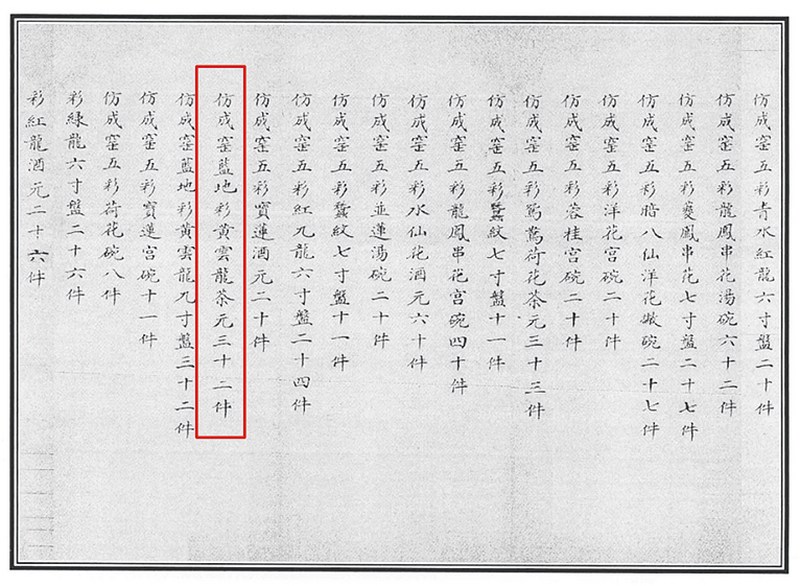 仿成窑五彩青水紅龍六寸盤二十件
仿成窑五彩龍鳳串花湯碗六十二件
仿成窑五彩夔鳳串花七寸盤二十七件
仿成窑五彩暗八仙洋花墩碗二十七件
仿成窑五彩洋花宫碗二十件
仿成窑五彩蓉桂宫碗二十件
仿成窑五彩鴛鴦荷花茶元三十三件
仿成窑五彩蚕紋七寸盤十一件
仿成窑五彩龍鳳串花宫碗四十件
仿成窑五彩水仙花酒元六十件
仿成窑五彩並蓮湯碗二十件
仿成窑五彩蚕紋七寸盤十一件
仿成窑五彩紅九龍六寸盤二十四件
仿成窑五彩寳蓮酒元二十件
仿成窑藍地彩黄雲龍茶元三十二件
仿成窑藍地彩黄雲龍九寸盤三十二件
仿成窑五彩寳蓮宫碗十一件
仿成窑五彩荷花碗八件
彩緑龍六寸盤二十六件
彩紅龍酒元二十六件